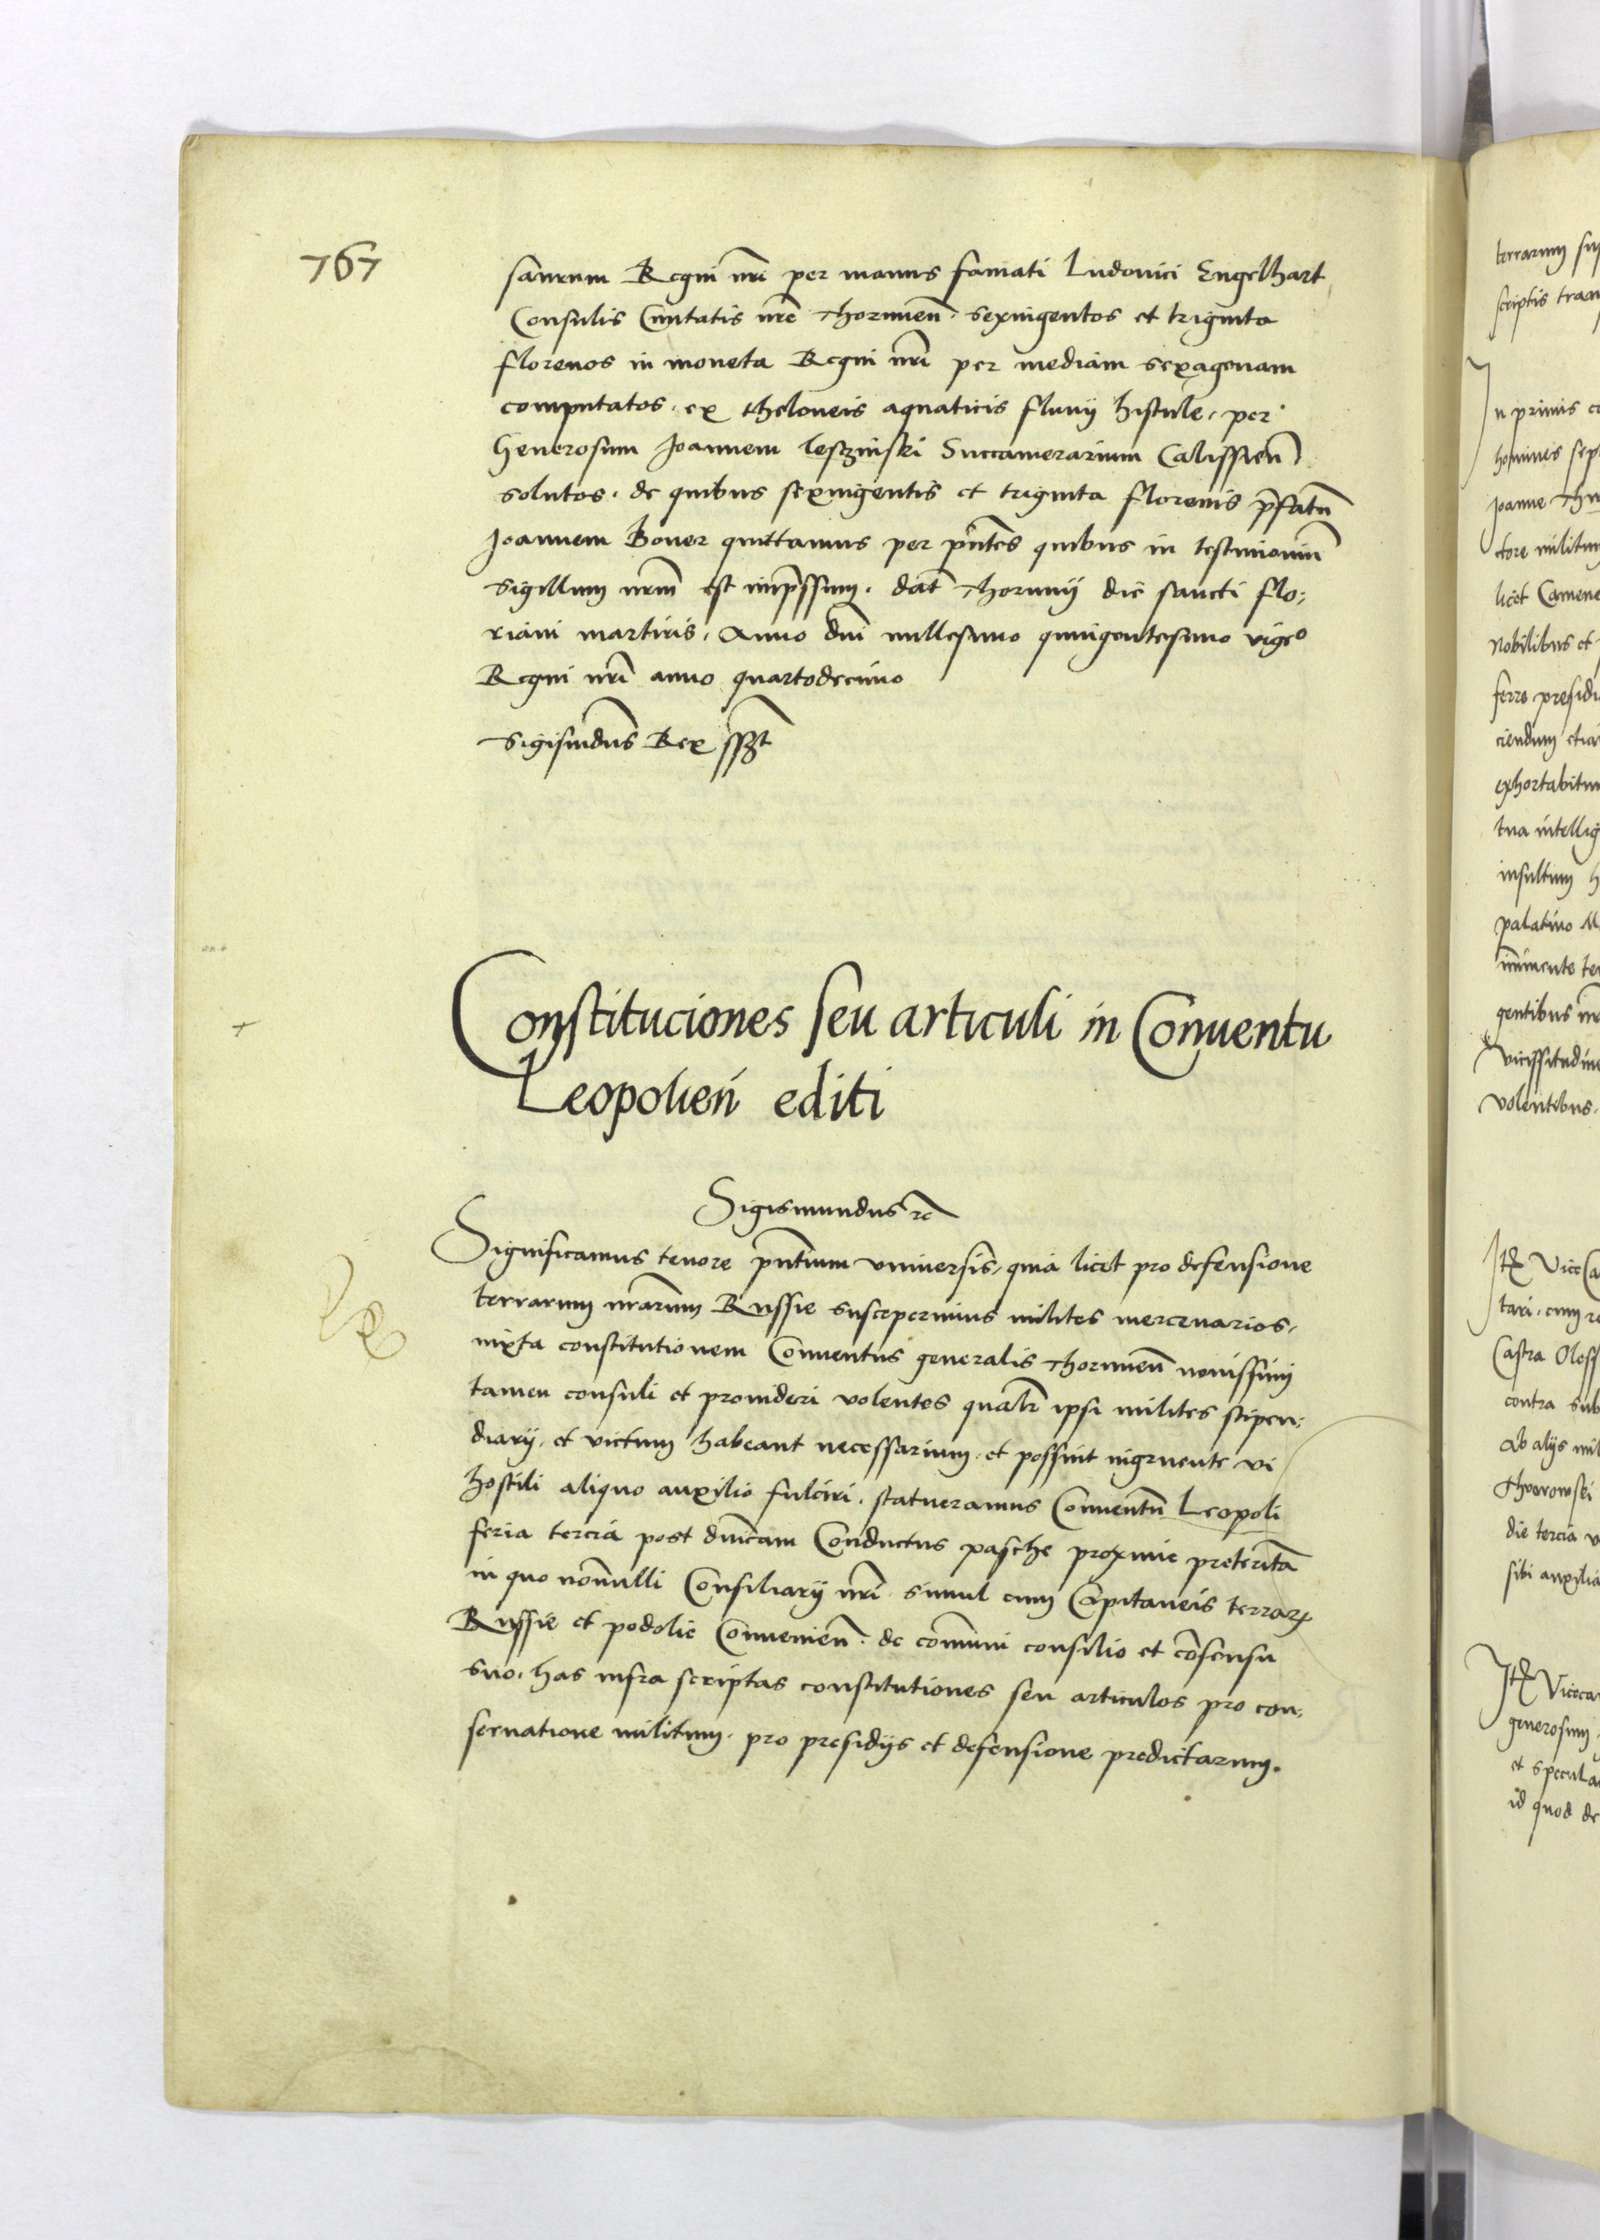 767
saurum Regni nri per manus famati Ludouici Engelhart
Consulis Ciuitatis nre Thorunien. sexingentos et triginta
florenos in moneta Regni nri per mediam sexagenam
computatos. ex theloneis aquaticis fluuij histule. per
Generosum Joannem lesczinski Succamerarium Calissien
solutos. de quibus sexingentis et triginta florenis pfatu
Joannem Boner quittamus per pntes quibus in testimoniu
sigillum nrm est impssum. dat Thorunij die sancti flo:
riani martiris. Anno dni millesimo quingentesimo vigeo
Regni nri anno quartodecimo
Sigismdus Rex sszt
Constituciones seu articuli in Conuentu
Leopolien editi
Sigismundus rc
Significamus tenore pntium vniuersis. quia licet pro defensione
terrarum nrarum Russie susceperimus milites mercenarios.
iuxta constitutionem Conuentus generalis Thorunien nouissimi
tamen consuli et prouideri volentes qualr ipsi milites stipen:
diarij. et victum habeant necessarium. et possint ingruente vi
hostili aliquo auxilio fulciri. statueramus Conuentu Leopoli
feria tercia post dnicam Conductus pasche proxime preterita
in quo nonnulli Consiliarij nri simul cum Capitaneis terrarꝝ
Russie et podolie Conuenien. de comuni consilio et cosensu
suo. has infra scriptas constitutiones seu articulos pro con:
seruatione militum. pro presidijs et defensione predictarum.
terrarum
scriptis
In primis
homines
Joanne
ctore militum
licet
Nobilibus et
ferre
ciendum
exhortabitur
tua
insultum
palatino
imminente
gentibus
vicissitudine
volentibus.
tari. cum
Castra
contra
Ab alijs
die tercia
sibi
generosum
et
id quod de